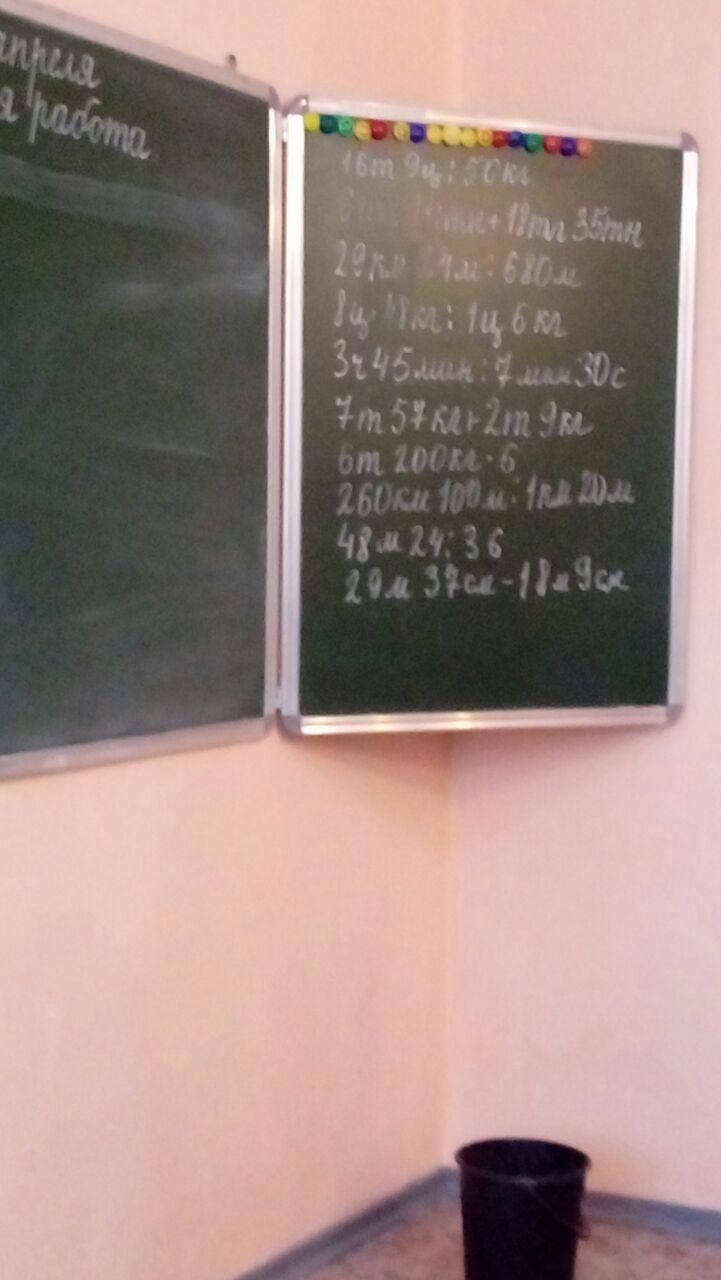 апреля
я работа
16т 9ц : 50кг
+ 18тг 35тн
29км 24м : 680м
8ц 48кг : 1ц 6кг
3ч 45мин : 7мин 30с
7т 57кг + 2т 9кг
6т 200кг · 6
260км 100м : 1км 20м
48м 24 : 36
29м 37см - 18м 9см